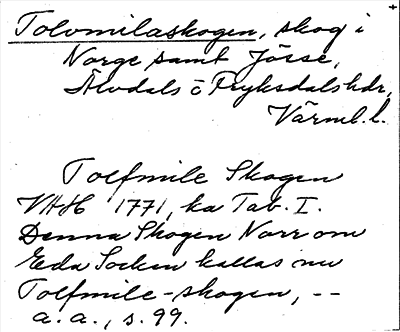 Tolvmilaskogen, skog i
Norge samt Jösse,
Älvdals o Fryksdals hdr,
Värml. l.
Tolfmile Skogen
VAH 1771, ka Tab. I.
Denna Skogen Norr om
Eda Socken kallas nu
Tolfmile-skogen, --
a. a., s. 99.